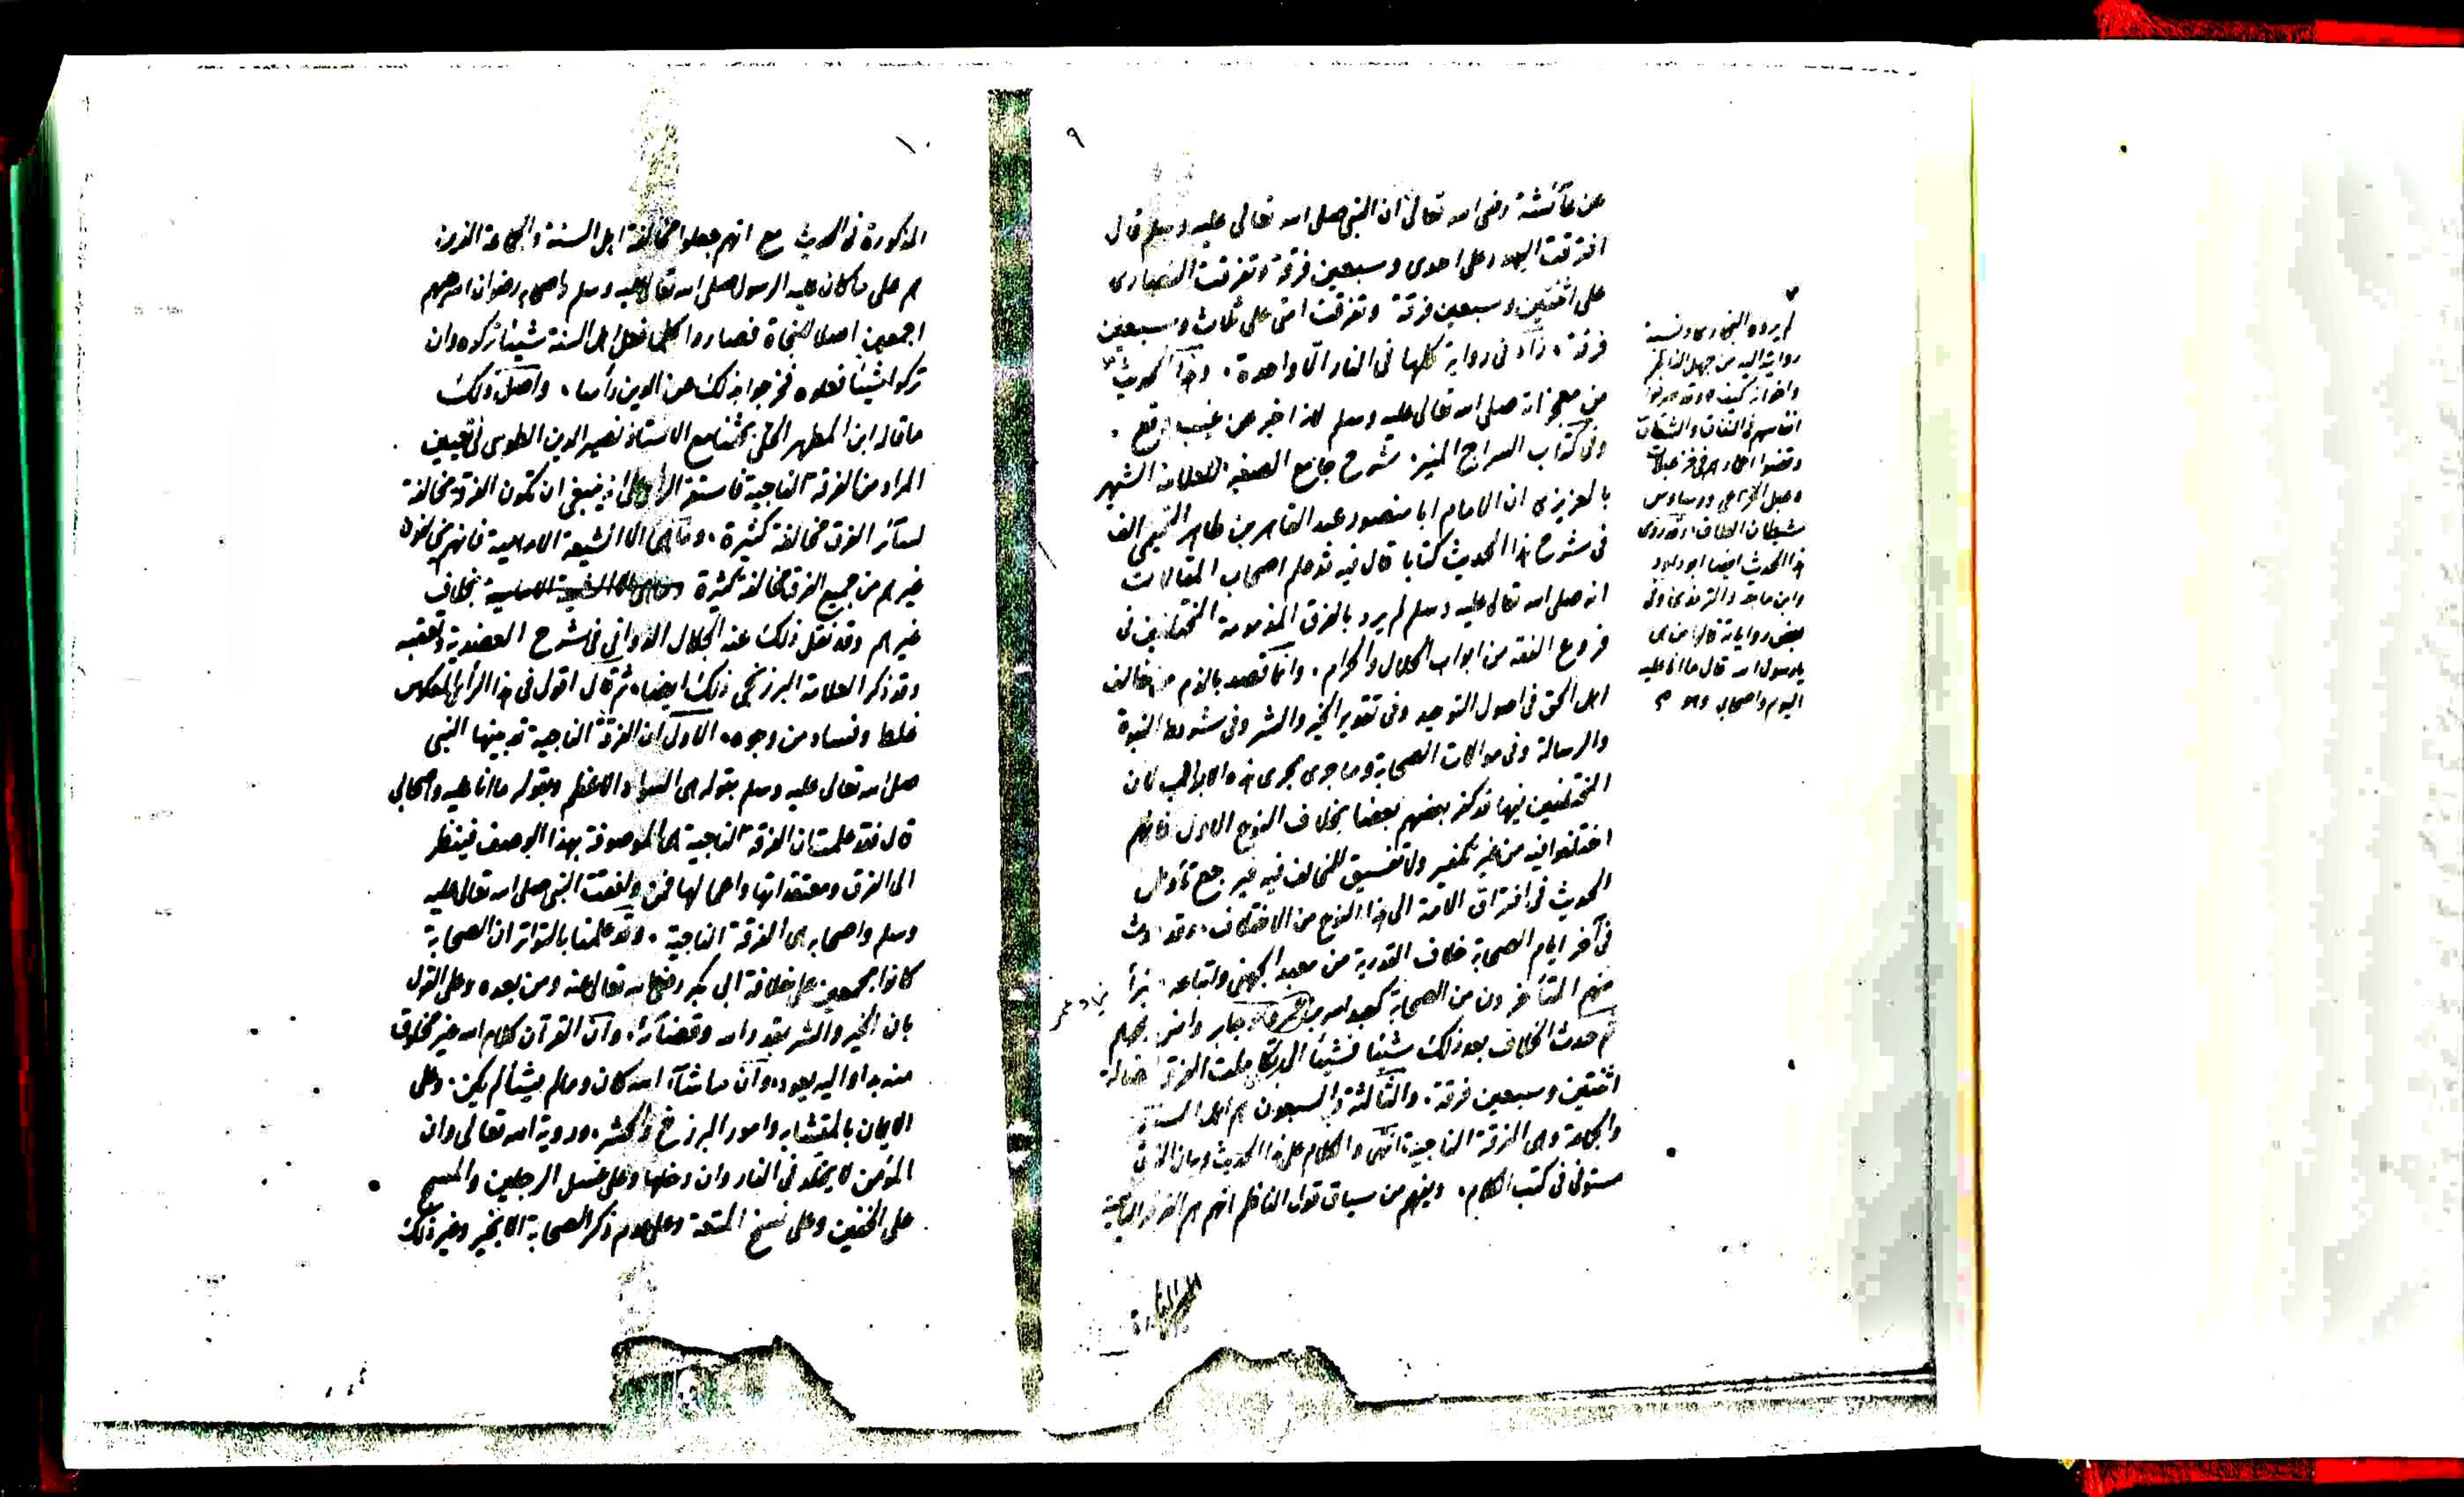 ٩
عن عآئشة رضى الله تعالى ان النبى صلى الله تعالى عليه وسلم قال
افترقت اليهود على احدى وسبعين فرقة وتفرقت النصارى
على اثنتين وسبعين فرقة وتفرقت امتى على ثلاث وسبعين
فرقة، زاد فى رواية كلها فى النار الا واحدة. وهذا الحديث
من معجزاته صلى الله تعالى عليه وسلم لانه اخبر عن غيب وقع.
وفى كتاب السراج المنير. شرح جامع الصغير للعلامة الشهير
بالعزيزى ان الامام ابا منصور عبد القاهر بن طاهر التميمى الف
فى شرح هذا الحديث كتابا قال فيه قد علم اصحاب المقالات
انه صلى الله تعالى عليه وسلم لم يرد بالفرق المذمومة المختلفين فى
فروع الفقه من ابواب الحلال والحرام. وانما قصد بالذم من خالف
اهل الحق فى اصول التوحيد وفى تقدير الخير والشر وفى شروط النبوة
والرسالة وفى موالات الصحابة وما جرى مجرى هذه الابواب لان
المختلفين فيها قد كفر بعضهم بعضا بخلاف النوع الاول فانهم
اختلفوا فيه من غير تكفير ولا تفسيق للمخالف فيه فيرجع تأويل
الحديث فى افتراق الامة الى هذا النوع من الاختلاف. وقد حدث
فى آخر ايام الصحابة خلاف القدرية من معبد الجهنى واتباعه. تبرأ
منهم المتأخرون من الصحابة كعبد الله بن عمر وجابر وانس ونحوهم
ثم حدث الخلاف بعد ذلك شيئا فشيئا الى ان تكاملت الفرقة الضالة
اثنتين وسبعين فرقة. والثالثة والسبعون هم اهل السنة
والجماعة وهى الفرقة الناجية انتهى والكلام على هذا الحديث وبيان الفرق
مستوفى فى كتب الكلام. ويفهم من سياق قول الناظم انهم هم الفرقة الناجية
لم يرده البخارى ونسبة
روايته اليه من جهل الناظم
هذا الحديث ايضا ابو داود
وابن ماجه والترمذى وفى
بعض رواياته قالوا من هى
يا رسول الله قال ما انا عليه
اليوم واصحابى
١٠
المذكورة فى الحديث مع انهم جعلوا مخالفة اهل السنة والجماعة الذين
هم على ما كان عليه الرسول صلى الله تعالى عليه وسلم واصحابه رضوان الله عليهم
اجمعين اصلا للنجاة فصاروا كلما فعل اهل السنة شيئا تركوه وان
تركوا شيئا فعلوه فخرجوا بذلك عن الدين رأسا. واصل ذلك
ما قاله ابن المطهر الحلى بحثنا مع الاستاذ نصير الدين الطوسى فى تعيين
المراد من الفرقة الناجية فاستقر الرأى على انه ينبغى ان تكون الفرقة مخالفة
لسآئر الفرق مخالفة كثيرة. وما هى الا الشيعة الامامية فانهم يخالفون
غيرهم من جميع الفرق مخالفة كثيرة بخلاف
غيرهم وقد نقل ذلك عنه الجلال الدوانى فى شرح العضدية وتعقبه
وقد ذكر العلامة البرزنجى ذلك ايضا. ثم قال اقول فى هذا الرأى المعكوس
غلط وفساد من وجوه. الاول ان الفرقة الناجية قد بينها النبى
صلى الله تعالى عليه وسلم بقوله هى السواد الاعظم وبقوله ما انا عليه واصحابى
قال فقد علمت ان الفرقة الناجية هى الموصوفة بهذا الوصف فينظر
الى الفرق ومعتقداتها واعمالها فمن وافقت النبى صلى الله تعالى عليه
وسلم واصحابه هى الفرقة الناجية. وقد علمنا بالتواتر ان الصحابة
كانوا مجمعين على خلافة ابى بكر رضى الله تعالى عنه ومن بعده وعلى القول
بان الخير والشر بقدر الله وقضآئه. وان القرآن كلام الله غير مخلوق
منه بدا واليه يعود. وان ما شآء الله كان وما لم يشأ لم يكن. وعلى
الايمان بالمتشابه وامور البرزخ والحشر. ورؤية الله تعالى وان
المؤمن لا يخلد فى النار وان دخلها وعلى غسل الرجلين والمسح
على الخفين وعلى نسخ المتعة وعلى عدم ذكر الصحابة الا بخير وغير ذلك